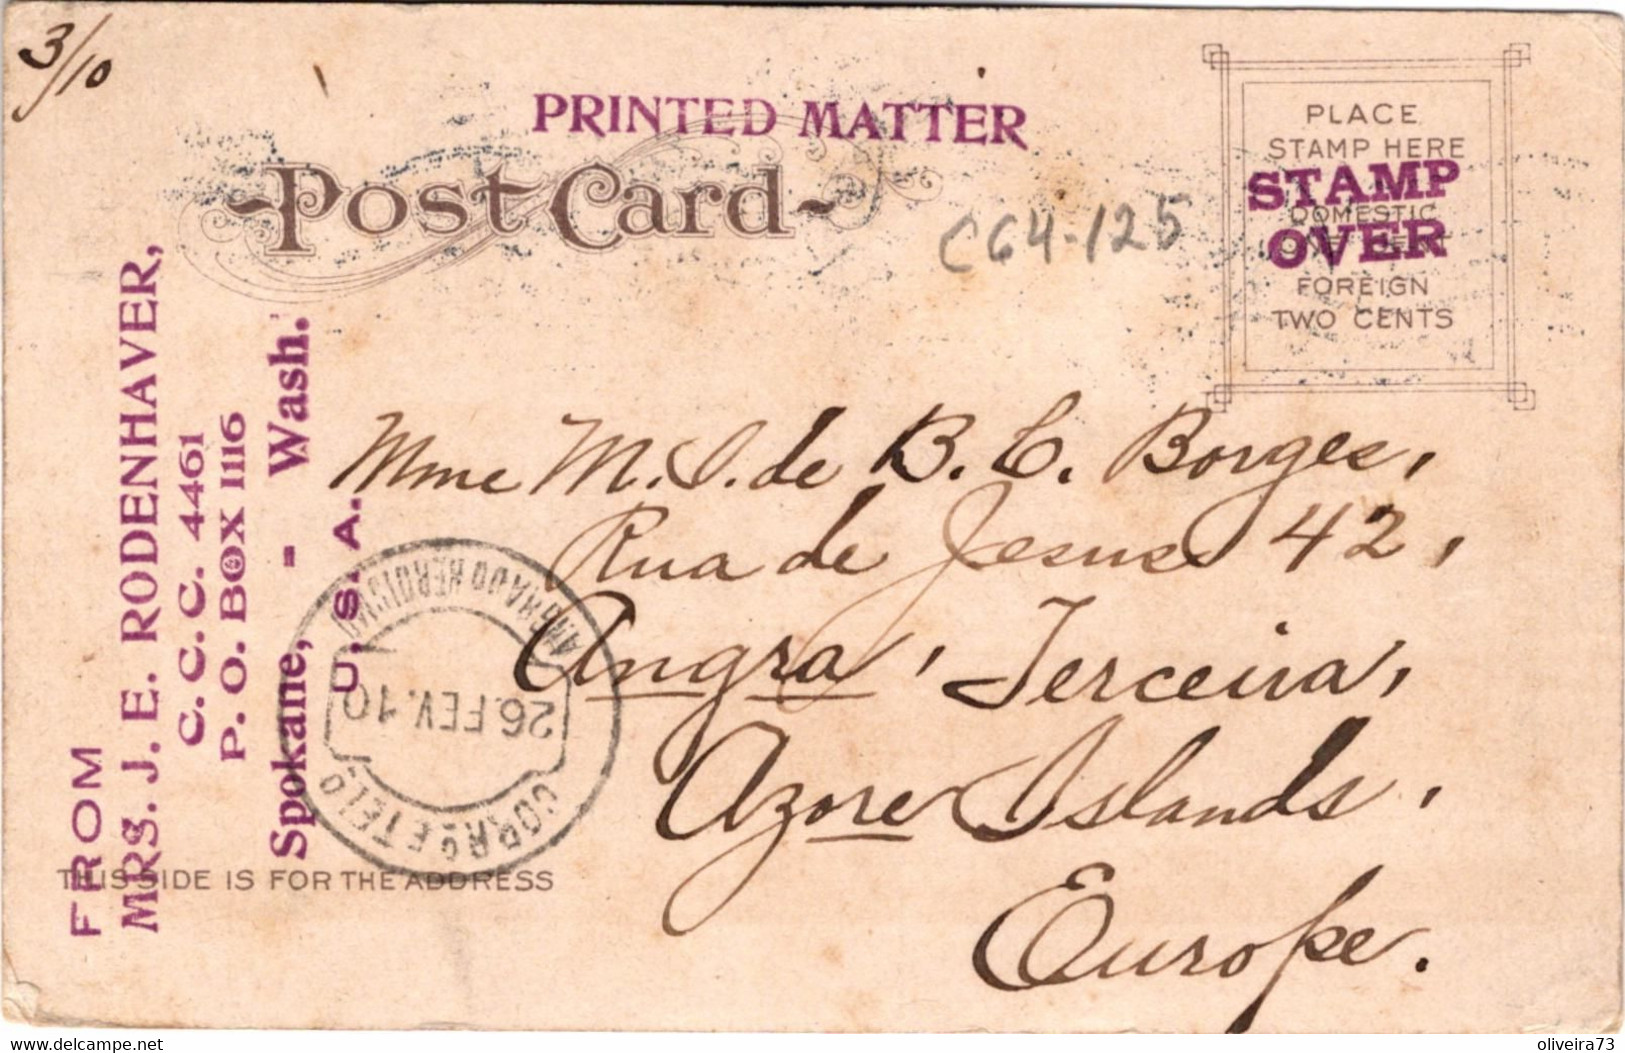 3/10
PRINTED MATTER
Post Card
C64-125
PLACE
STAMP HERE
DOMESTIC
FOREIGN
TWO CENTS
STAMP
OVER
FROM
MRS. J. E. RODENHAVER,
C. C. C. 4461
P. O. BOX 1116
Spokane, - Wash.
U. S. A.
Mme M. I. de B. C. Borges,
Rua de Jesus 42,
Angra, Terceira,
Azore Islands.
Europe.
ANGRA DO HEROISMO
26.FEV.10
CORRº E TELº
THIS SIDE IS FOR THE ADDRESS
delcampe.net
oliveira73